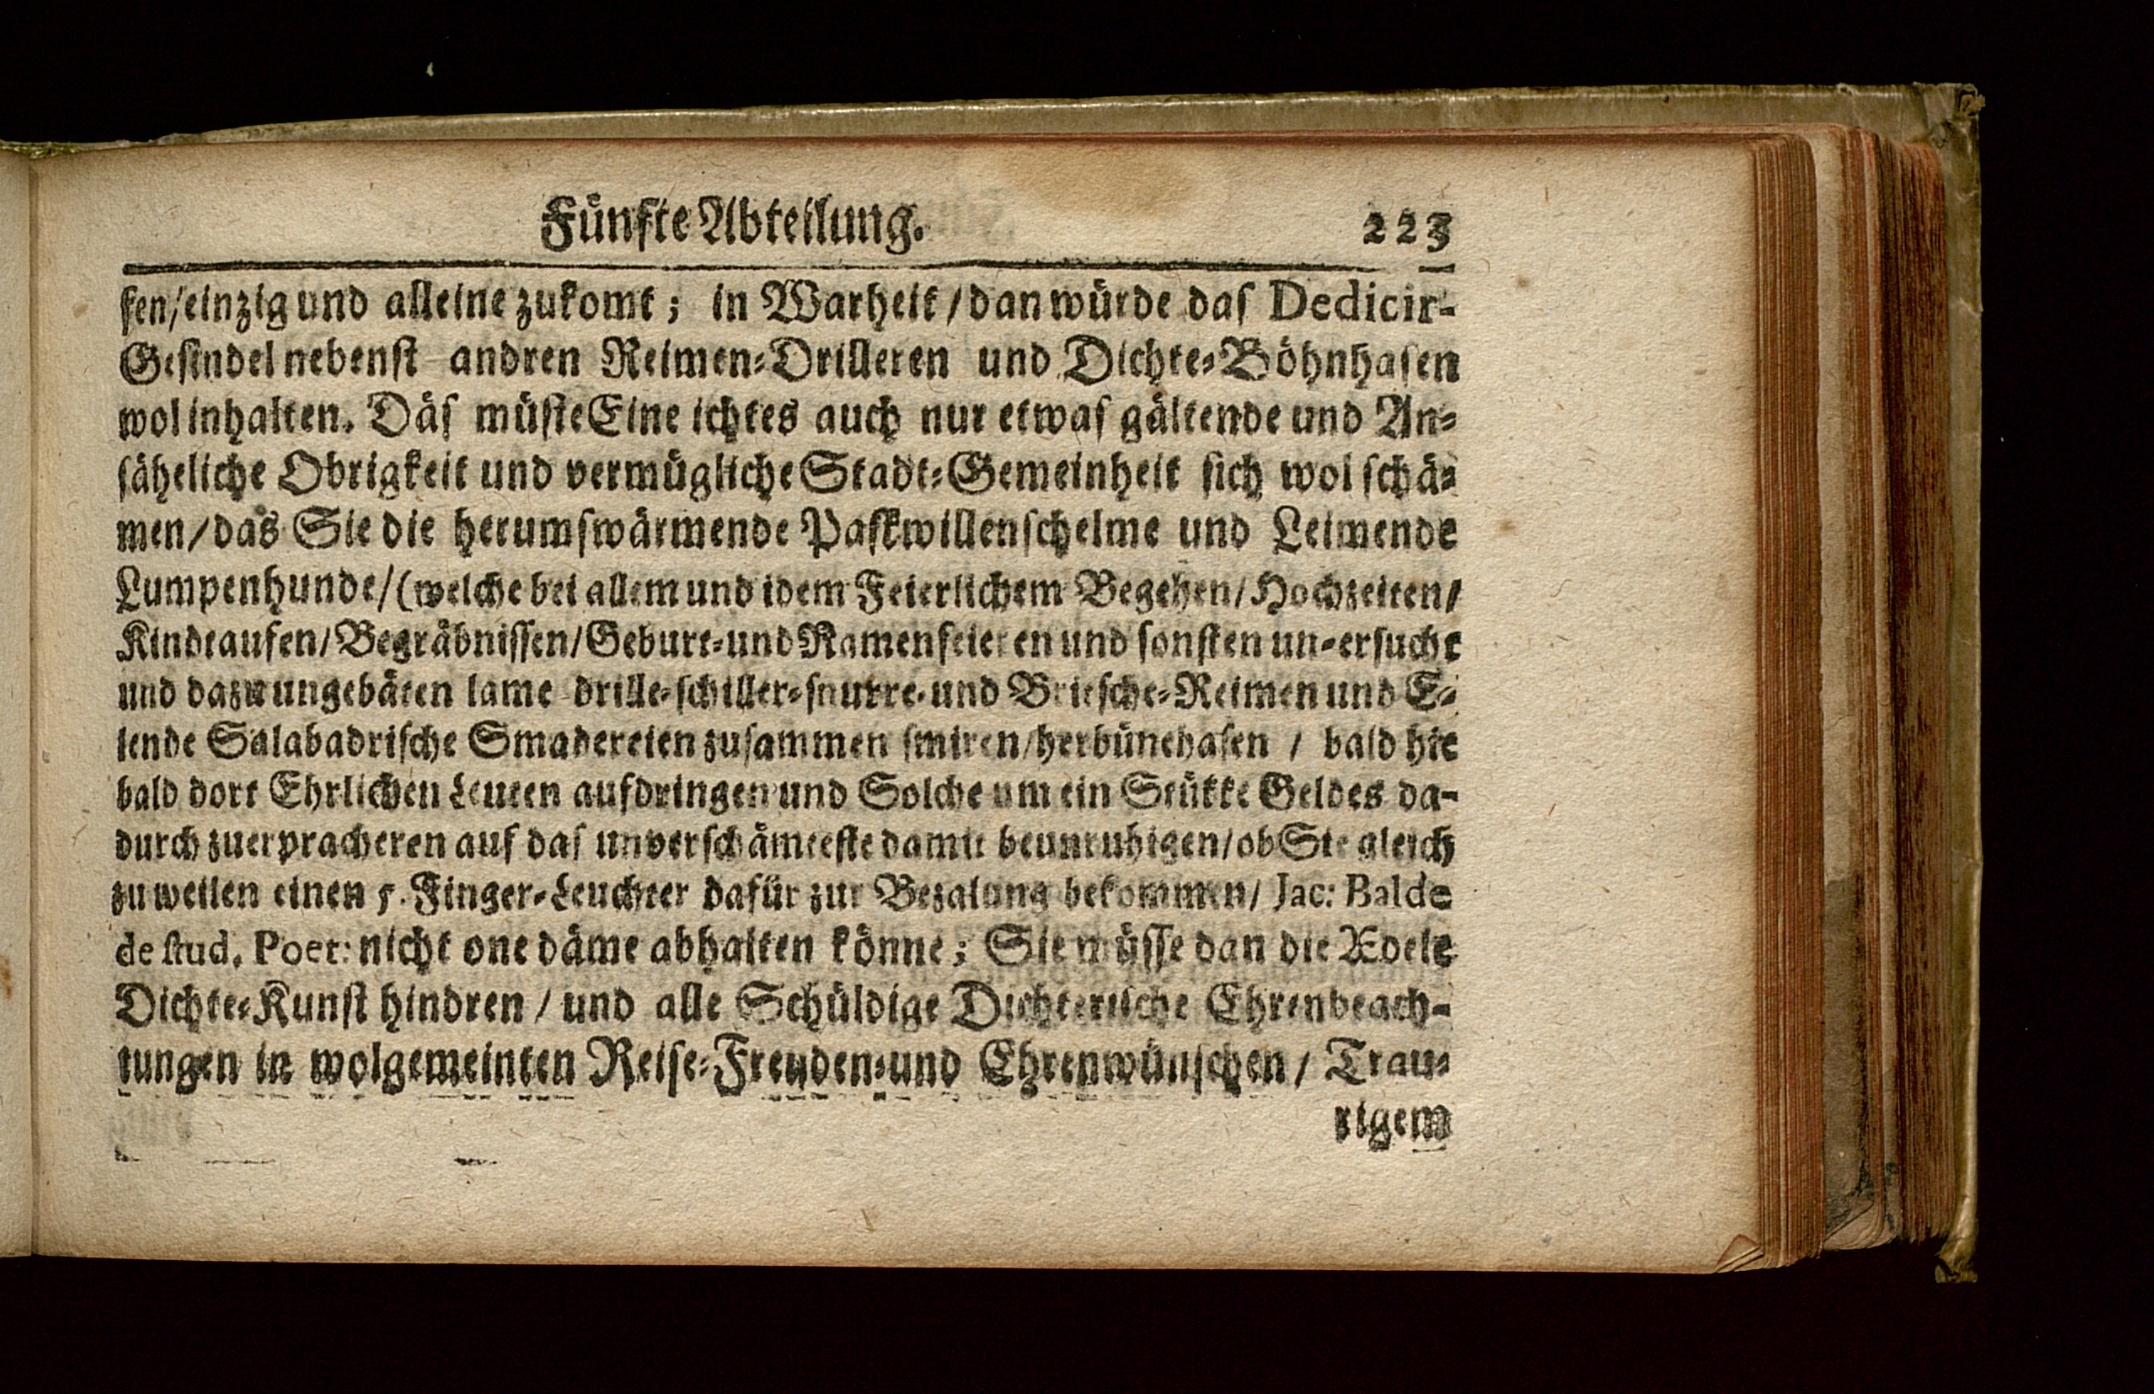 Fünfte Abteilung. 223
sen/einzig und alleine zukomt; in Warheit/dan würde das Dedicir-
Gesindel nebenst andren Reimen-Drilleren und Dichte-Böhnhasen
wol inhalten. Däs müste Eine ichtes auch nur etwas gältende und An-
säheliche Obrigkeit und vermügliche Stadt-Gemeinheit sich wol schä-
men/das Sie die herumswärmende Paskwillenschelme und Leimende
Lumpenhunde/(welche bei allem und idem Feierlichem Begehen/Hochzeiten/
Kindtaufen/Begräbnissen/Geburt-und Namenfeieren und sonsten un-ersucht
und dazu ungebäten lame drille-schiller-snurre-und Britsche-Reimen und E-
lende Salabadrische Smadereien zusammen smiren/herbünehasen / bald hie
bald dort Ehrlichen Leuten aufdringen und Solche um ein Stükke Geldes da-
durch zuerpracheren auf das unverschämteste damit beunruhigen/ob Sie gleich
zu weilen einen 5. Finger-Leuchter dafür zur Bezalung bekommen/ Jac: Balde
de stud. Poet: nicht one däme abhalten könne; Sie müsse dan die Ædele
Dichte-Kunst hindren / und alle Schüldige Dichterische Ehrenbeach-
tungen in wolgemeinten Reise-Freuden-und Ehrenwünschen / Trau-
rigem